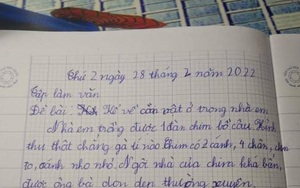 Thứ 2 ngày 28 tháng 2 năm 2022
Tập làm văn
Đề bài: Kể về cắn vật ở trong nhà em
Nhà em trắng được 1 đàn chim bồ câu. Hình
thu thật chẳng gà tí nào. Chim có 2 cánh, 4 chân, chim
to, cánh nho nhỏ. Ngôi nhà của chim khá bẩn,
được ông bà dọn dẹp thường xuyên